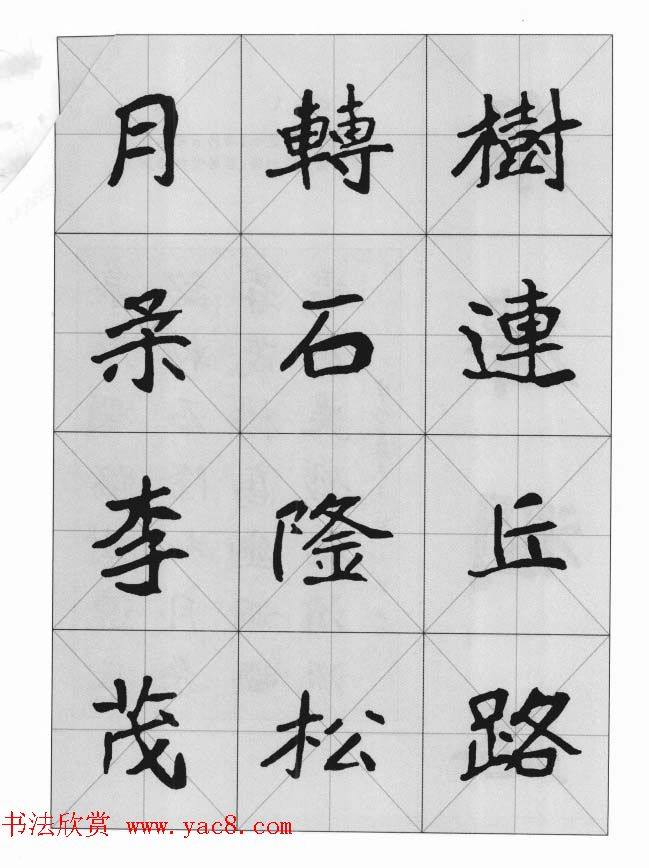 樹連丘路
轉石松
月柔李茂
书法欣赏 www.yac8.com